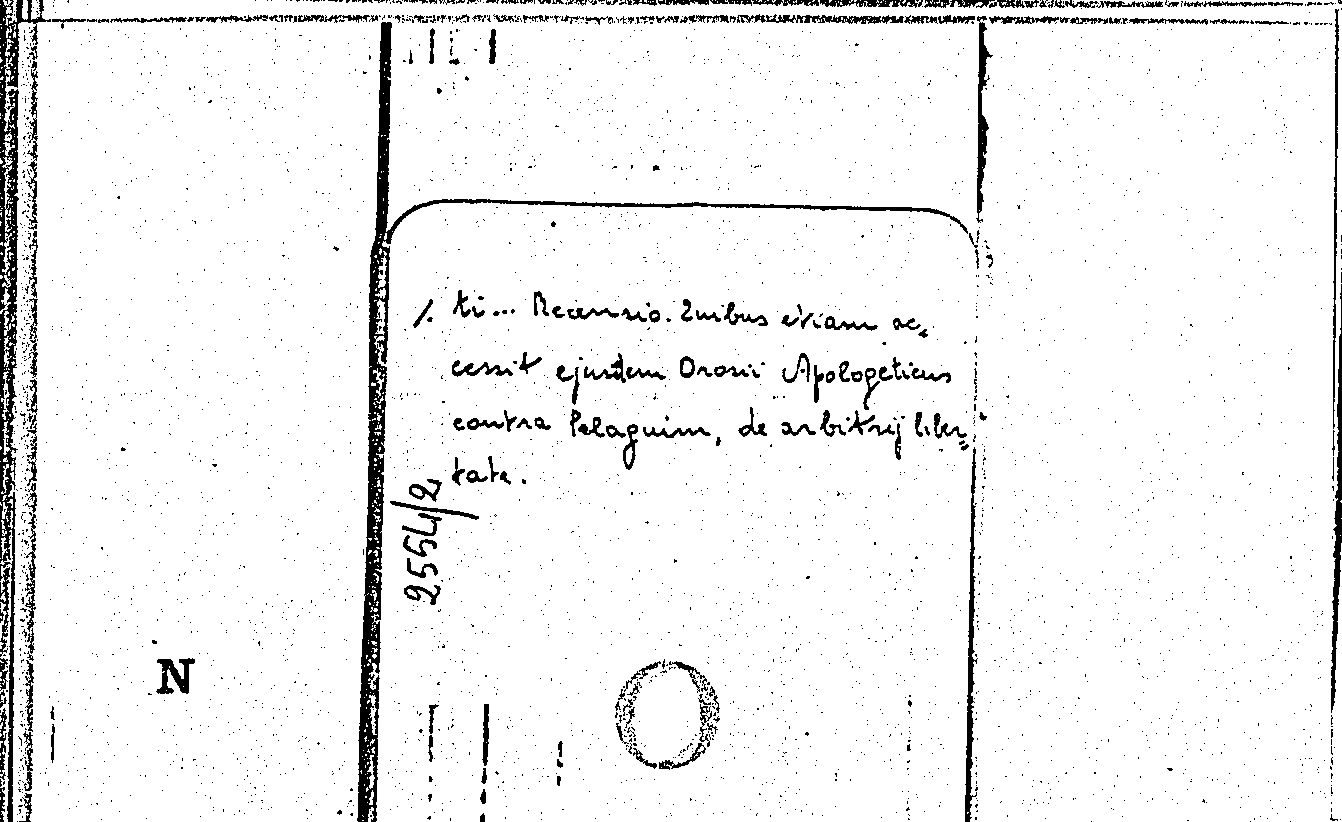 /. ti... Recensio. Quibus etiam ac-
cessit ejusdem Orosii Apologeticus
contra Pelagium, de arbitrij liber-
tate.
2554/2
N